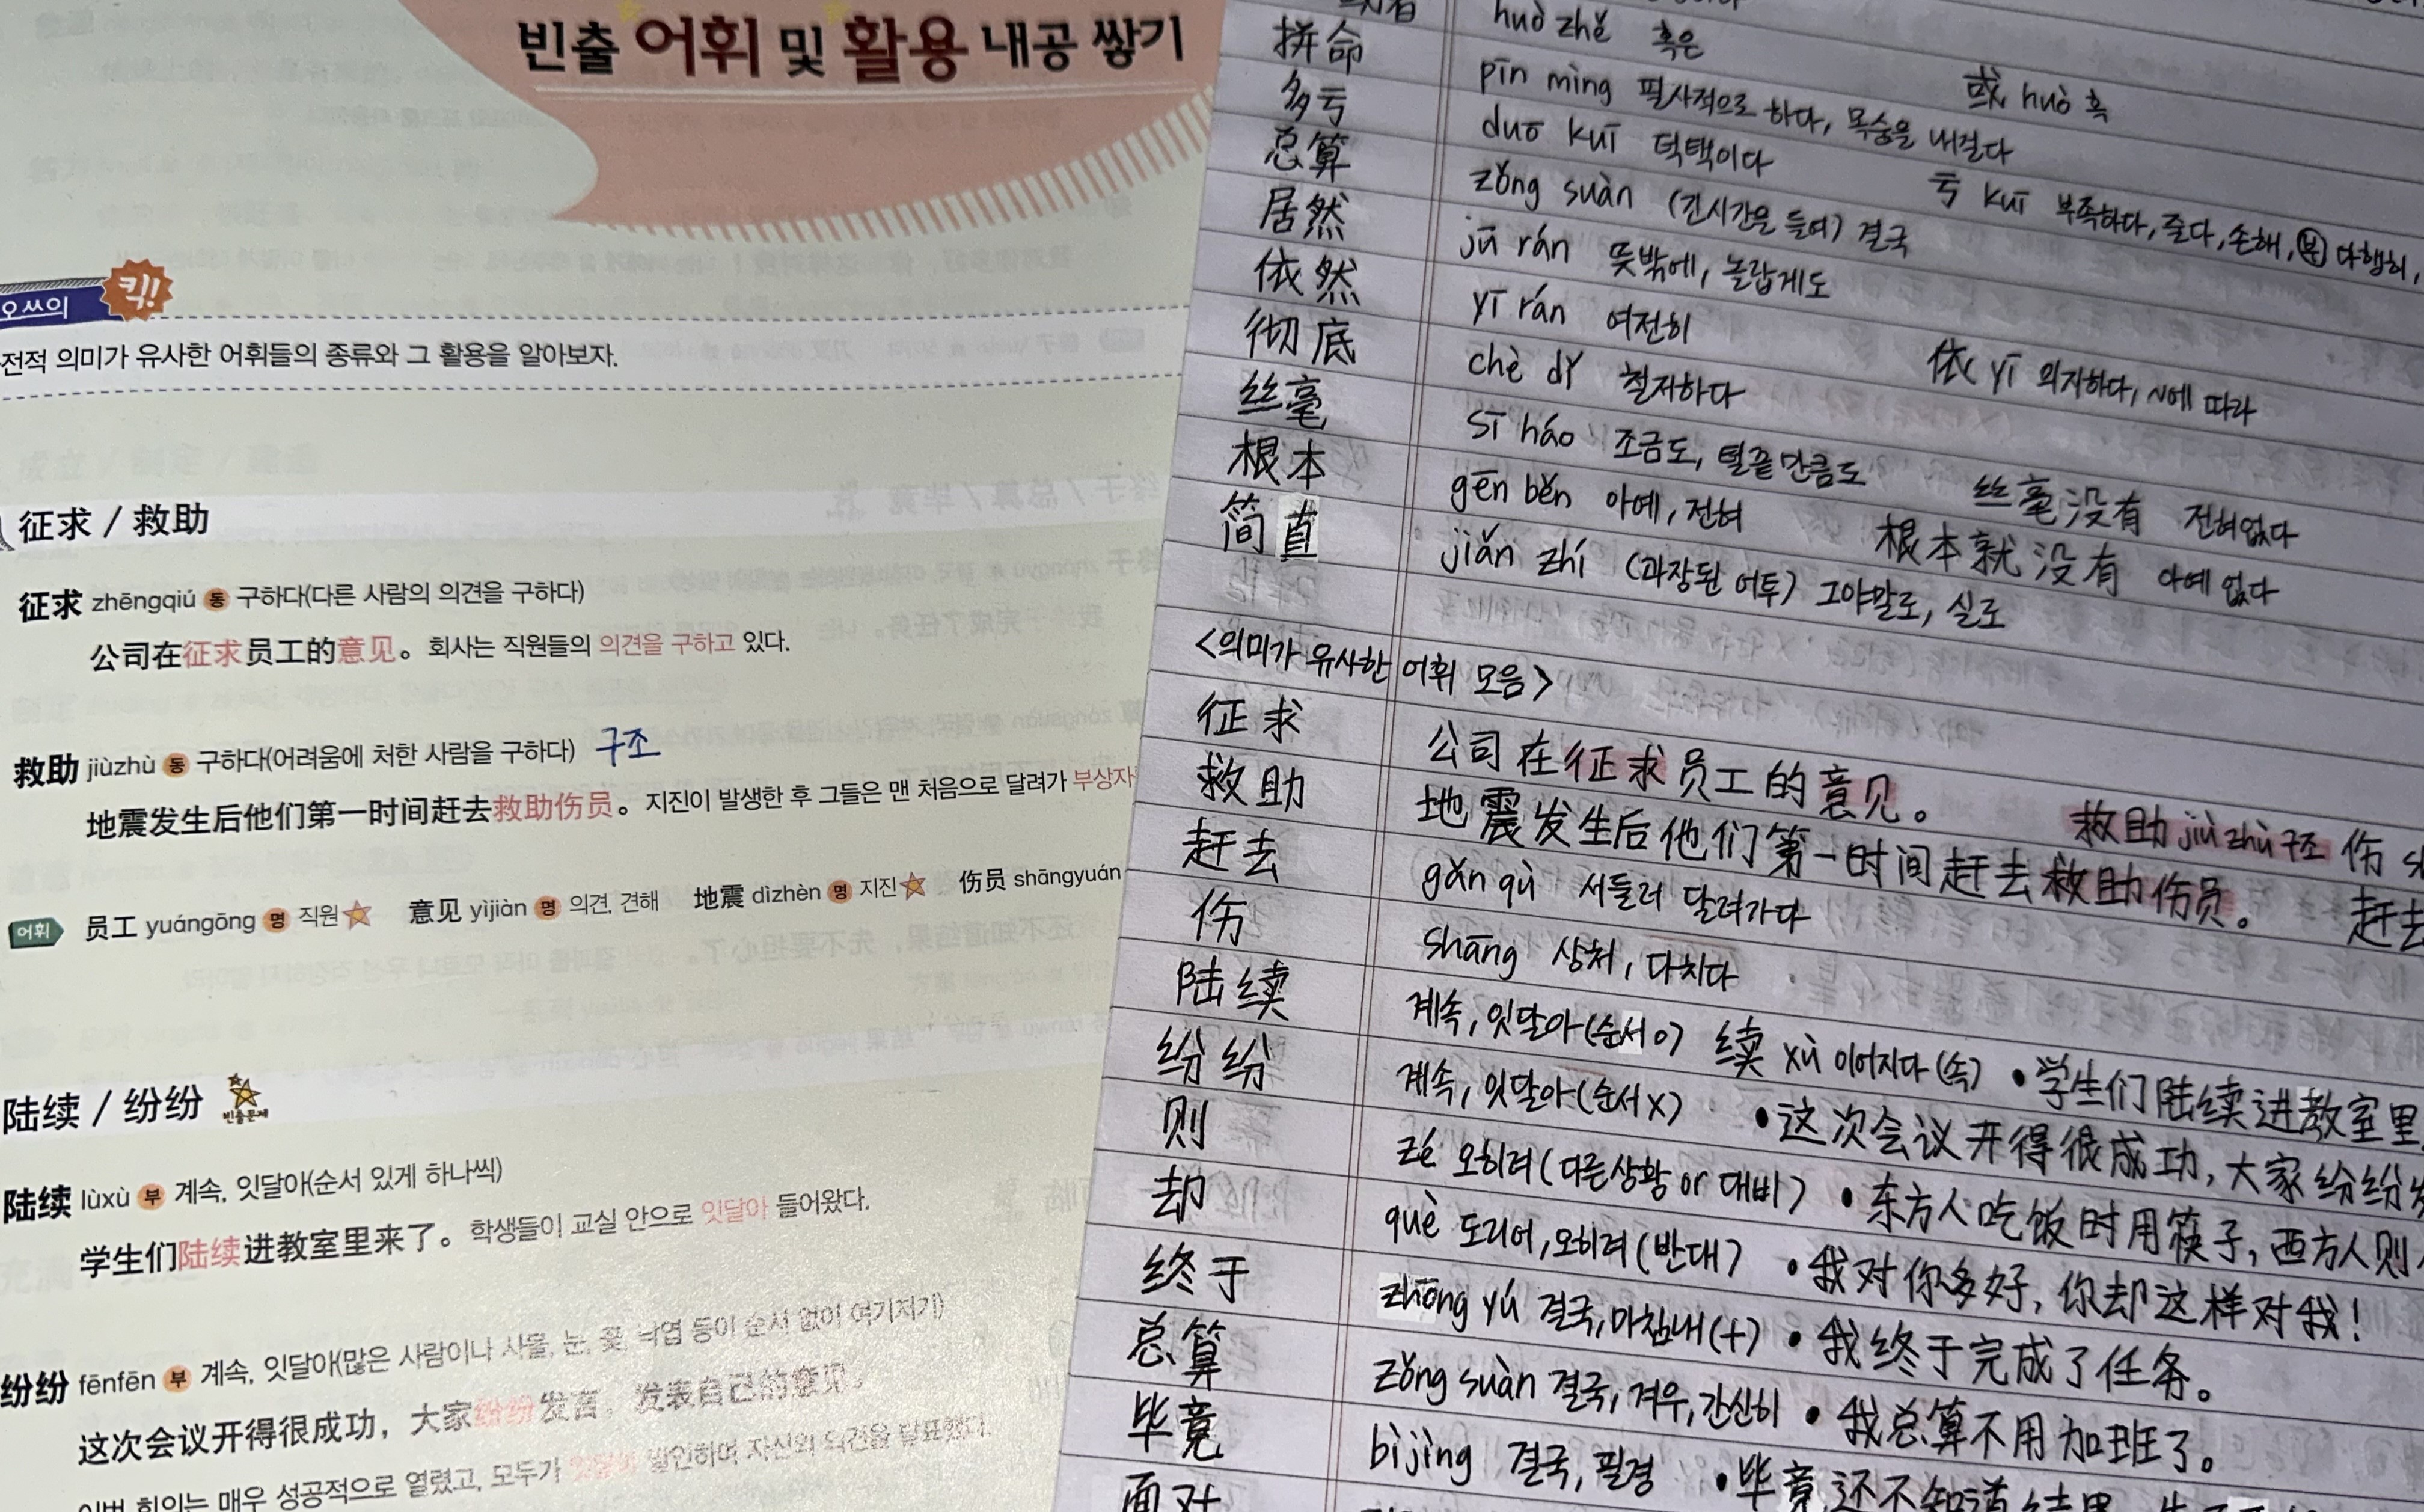 빈출 어휘 및 활용 내공 쌓기
오쓰의 킥!
전적 의미가 유사한 어휘들의 종류와 그 활용을 알아보자.
征求 / 救助
征求 zhēngqiú 동 구하다(다른 사람의 의견을 구하다)
公司在征求员工的意见。 회사는 직원들의 의견을 구하고 있다.
救助 jiùzhù 동 구하다(어려움에 처한 사람을 구하다) 구조
地震发生后他们第一时间赶去救助伤员。 지진이 발생한 후 그들은 맨 처음으로 달려가 부상자
어휘 员工 yuángōng 명 직원 意见 yìjiàn 명 의견, 견해 地震 dìzhèn 명 지진 伤员 shāngyuán
陆续 / 纷纷 빈출문제
陆续 lùxù 부 계속, 잇달아(순서 있게 하나씩)
学生们陆续进教室里来了。 학생들이 교실 안으로 잇달아 들어왔다.
纷纷 fēnfēn 부 계속, 잇달아(많은 사람이나 사물, 눈, 꽃, 낙엽 등이 순서 없이 여기저기)
这次会议开得很成功，大家纷纷发言，发表自己的意见。
이번 회의는 매우 성공적으로 열렸고, 모두가 잇달아 발언하며 자신의 의견을 발표했다.
huò zhě 혹은 或 huò 혹
拼命 pīn mìng 필사적으로 하다, 목숨을 내걸다
多亏 duō kuī 덕택이다 亏 kuī 부족하다, 줄다, 손해, 부 다행히,
总算 zǒng suàn (긴시간을 들여) 결국
居然 jū rán 뜻밖에, 놀랍게도
依然 yī rán 여전히 依 yī 의지하다, ~에 따라
彻底 chè dǐ 철저하다
丝毫 sī háo 조금도, 털끝만큼도 丝毫没有 전혀없다
根本 gēn běn 아예, 전혀 根本就没有 아예 없다
简直 jiǎn zhí (과장된 어투) 그야말로, 실로
<의미가 유사한 어휘 모음>
征求 公司在征求员工的意见。 救助 jiù zhù 구조 伤
救助 地震发生后他们第一时间赶去救助伤员。 赶去
赶去 gǎn qù 서둘러 달려가다
伤 shāng 상처, 다치다
陆续 계속, 잇달아(순서 o) 续 xù 이어지다 (속) • 学生们陆续进教室里
纷纷 계속, 잇달아(순서 x) • 这次会议开得很成功, 大家纷纷发
则 zé 오히려 (다른상황 or 대비) • 东方人吃饭时用筷子, 西方人则
却 què 도리어, 오히려 (반대) • 我对你多好, 你却这样对我!
终于 zhōng yú 결국, 마침내 (+) • 我终于完成了任务。
总算 zǒng suàn 결국, 겨우, 간신히 • 我总算不用加班了。
毕竟 bì jìng 결국, 필경 • 毕竟还不知道结果
面对